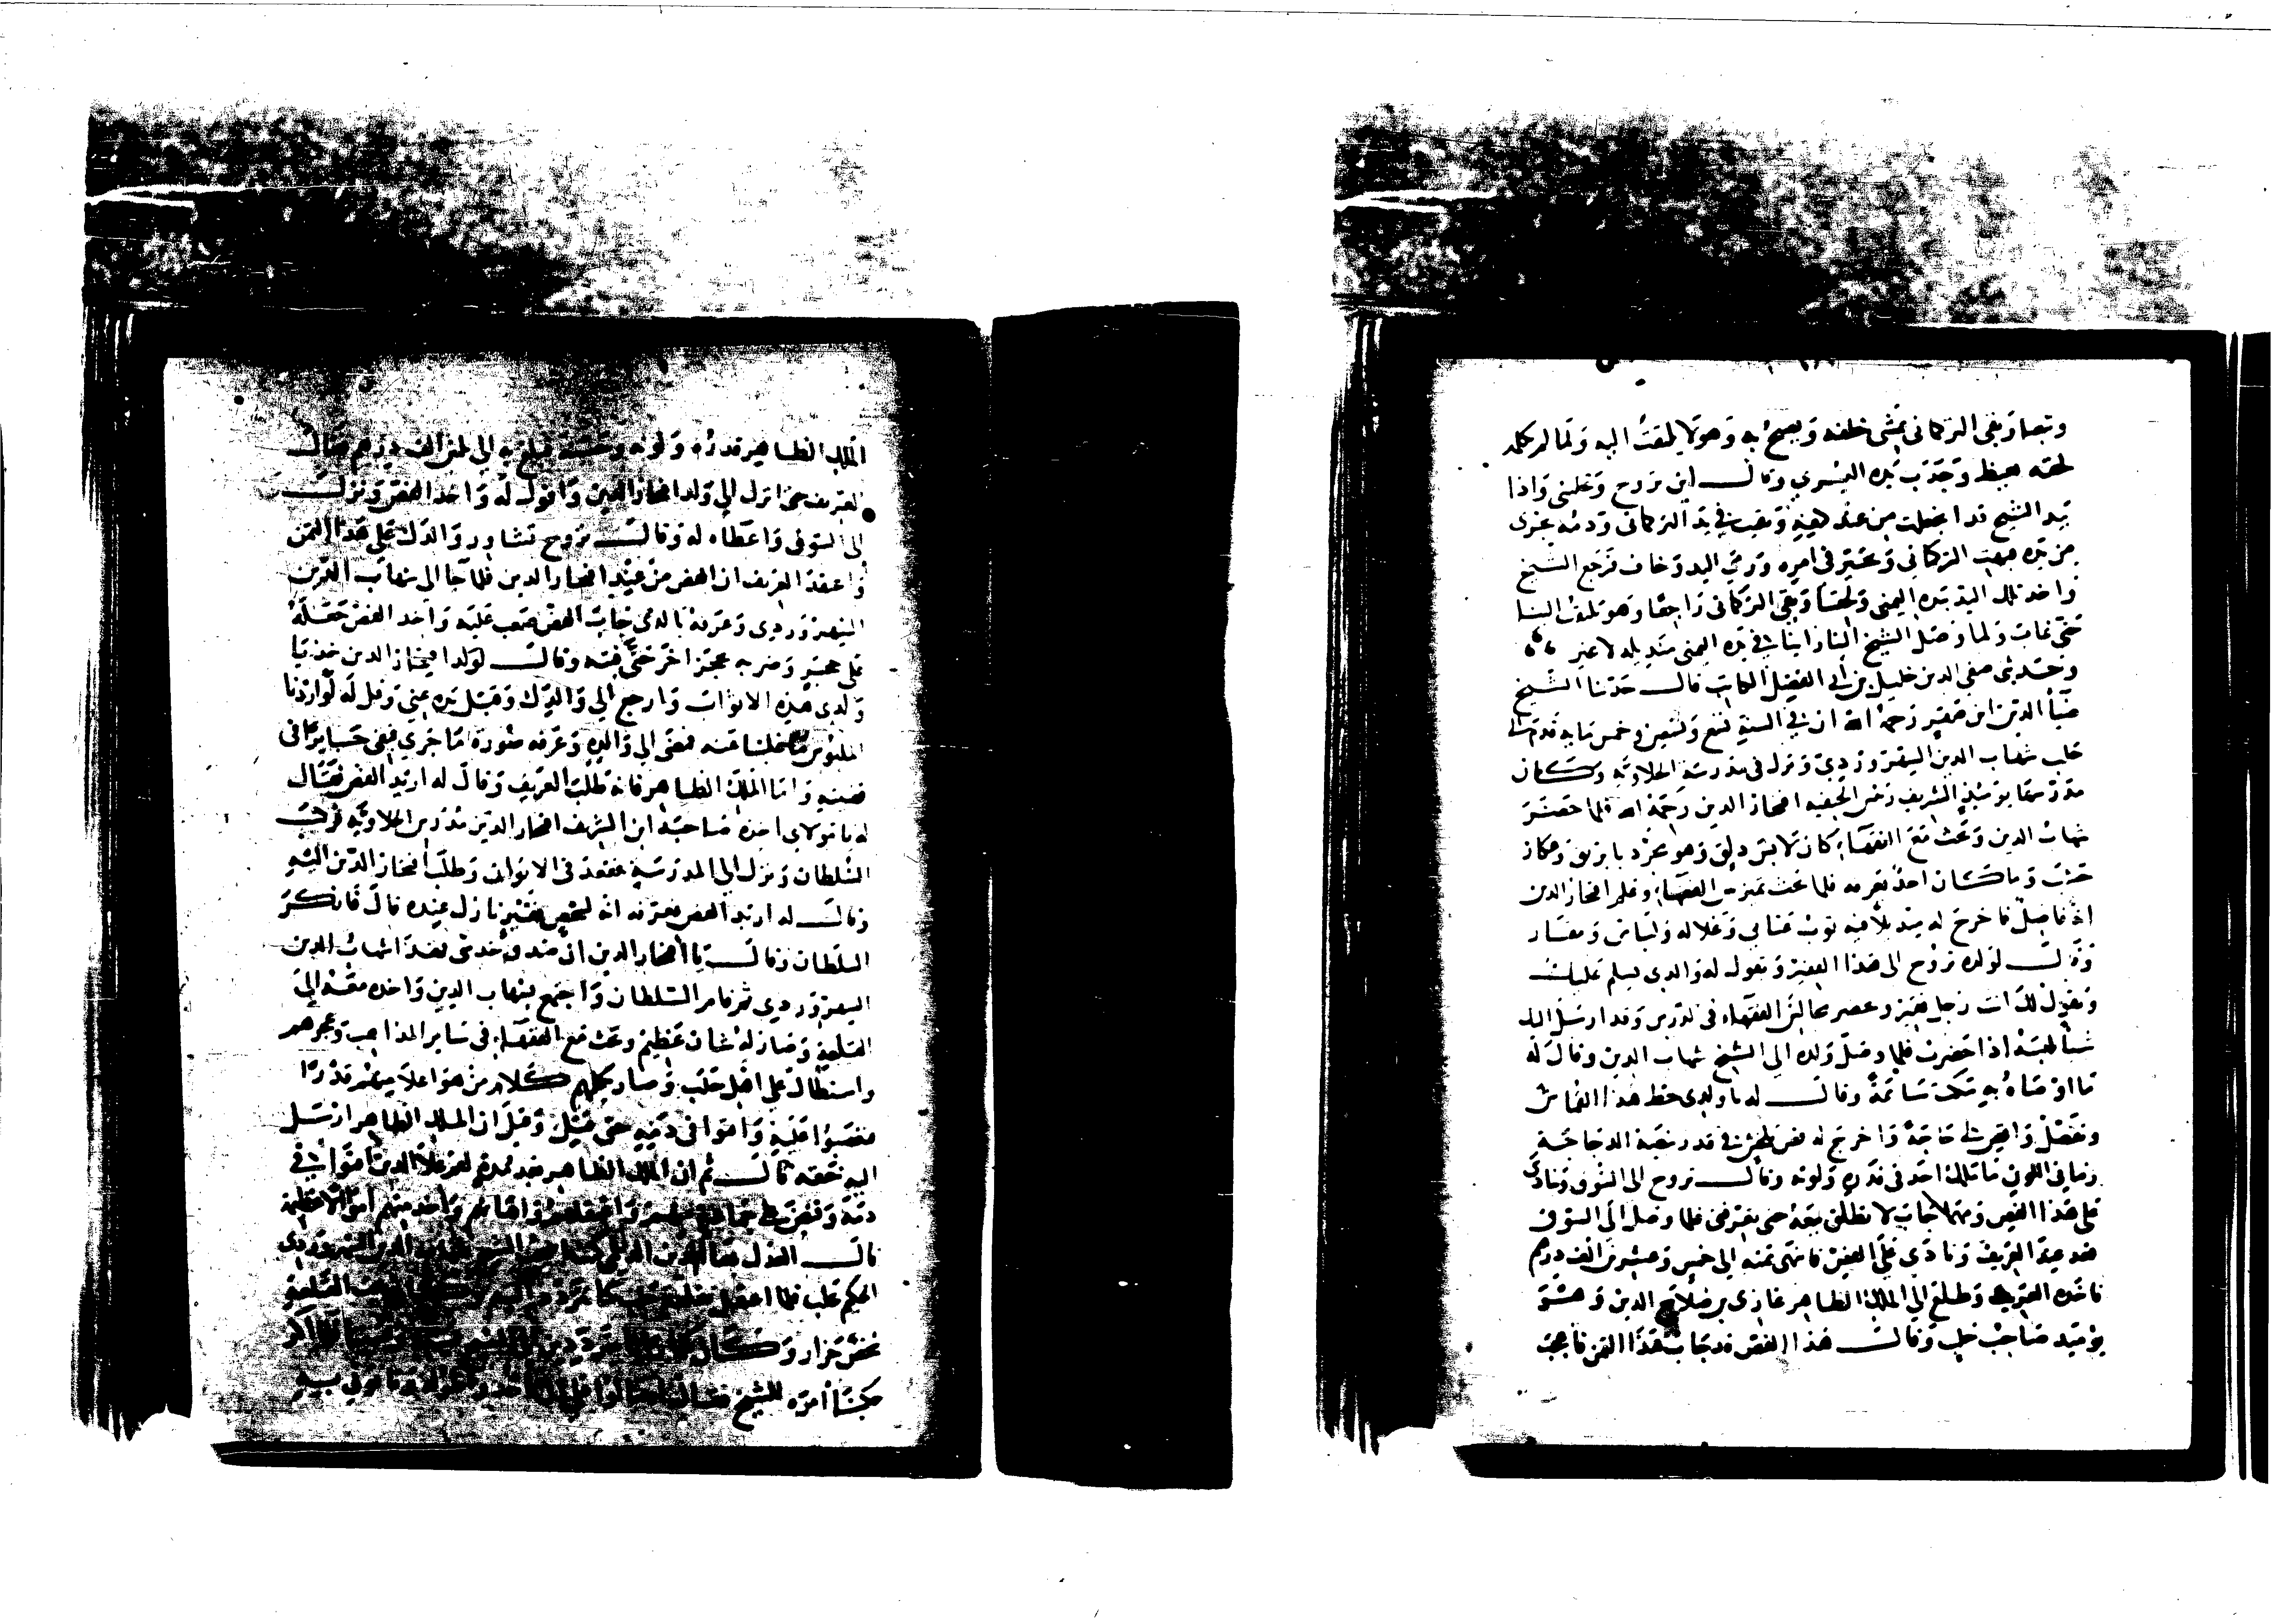 وتبعا وبقي التركماني يمشي خلفه ويصيح به وهو لا يلتفت اليه ولما لم يكلمه
لحقه بغيظ وجذب يده اليسرى وقال اين تروح وتخليني واذا
بيد الشيخ قد انخلعت من عند كتفه وبقيت في يد التركماني ودمه يجرى
من يده فبهت التركماني وتحير في امره ورمى اليد وخاف فرجع الشيخ
واخذ تلك اليد بيده اليمنى ولحقنا وبقي التركماني راجعا وهو يلتفت الينا
حتى غاب ولما وصل الشيخ الينا راينا في يده اليمنى منديله لا غير
وحدثني صفي الدين خليل بن ابي الفضل الكاتب قال حدثنا الشيخ
ضيا الدين ابن صقر رحمه الله ان في السنة تسع وسبعين وخمس مايه قدم الى
حلب شهاب الدين السهروردي ونزل في مدرسة الحلاويه وكان
مدرسها يومئذ الشريف رئيس الحنفيه افتخار الدين رحمه الله فلما حضر
شهاب الدين وبحث مع الفقهاء كان لابس دلق وهو مجرد بابريق وعكاز
خشب وما كان احد يعرفه فلما بحث تميز بين الفقهاء وعلم افتخار الدين
انه فاضل فاخرج له منديلا فيه ثوب عتابي وغلاله ولباس وبقيار
وقال لولده تروح الى هذا الفقير وتقول له والدي يسلم عليك
ويقول لك انت رجل فقير وتحضر مجالس الفقهاء في الدرس وقد ارسل اليك
شيا تلبسه اذا حضرت فلما وصل ولده الى الشيخ شهاب الدين وقال له
ما اوصاه به سكت ساعة وقال له يا ولدي حط هذا القماش
وتفضل واقض لي حاجة واخرج له فص بلخش في قدر بيضة الدجاجة
رماني اللون ما ملك احد في قدره ولونه وقال تروح الى السوق وتنادي
على هذا الفص ومهما جاب لا تطلق بيعه حتى تعرفني فلما وصل الى السوق
قعد عند العريف ونادى على الفص فانتهى ثمنه الى خمس وعشرين الف درهم
فاخذه العريف وطلع الى الملك الظاهر غازي بن صلاح الدين وهو
يومئذ صاحب حلب وقال هذا الفص قد جاب هذا الثمن فاعجب
الملك الظاهر قدره ولونه وحسنه فبلغ به الى ثلثين الف درهم فقال
العريف حتى انزل الى ولد افتخار الدين واقول له واخذ الفص ونزل
الى السوق واعطاه له وقال تروح تشاور والدك على هذا الثمن
واعتقد العريف ان الفص من عند افتخار الدين فلما جا الى شهاب الدين
السهروردي وعرفه بالذي جاب الفص صعب عليه واخذ الفص جعله
على حجر وضربه بحجر اخر حتى فتته وقال لولد افتخار الدين خذ يا
ولدي هذه الاثواب وارجع الى والدك وقبل يده عني وقل له لو اردنا
الملبوس ما غلبنا عنه فمضى الى والده وعرفه صورة ما جرى فبقى حايرا في
قضيته واما الملك الظاهر فانه طلب العريف وقال له اريد الفص فقال
له يا مولاي اخذه صاحبه ابن الشريف افتخار الدين مدرس الحلاويه فركب
السلطان ونزل الى المدرسة وقعد في الايوان وطلب افتخار الدين اليه
وقال له اريد الفص فعرفه انه لشخص فقير نازل عنده قال فافكر
السلطان وقال يا افتخار الدين ان صدق حدسي فهذا شهاب الدين
السهروردي ثم قام السلطان واجتمع بشهاب الدين واخذه معه الى
القلعة وصار له شان عظيم وبحث مع الفقهاء في ساير المذاهب وعجزهم
واستطال على اهل حلب وصار يكلمهم كلام من هو اعلا منهم قدرا
فتعصبوا عليه وافتوا في دمه حتى قتل وقيل ان الملك الظاهر ارسل
اليه خنقه قال ثم ان الملك الظاهر بعد مدة نقم على الذين افتوا في
دمه وقبض على جماعة منهم واعتقلهم واهانهم واخذ منهم اموالا عظيمة